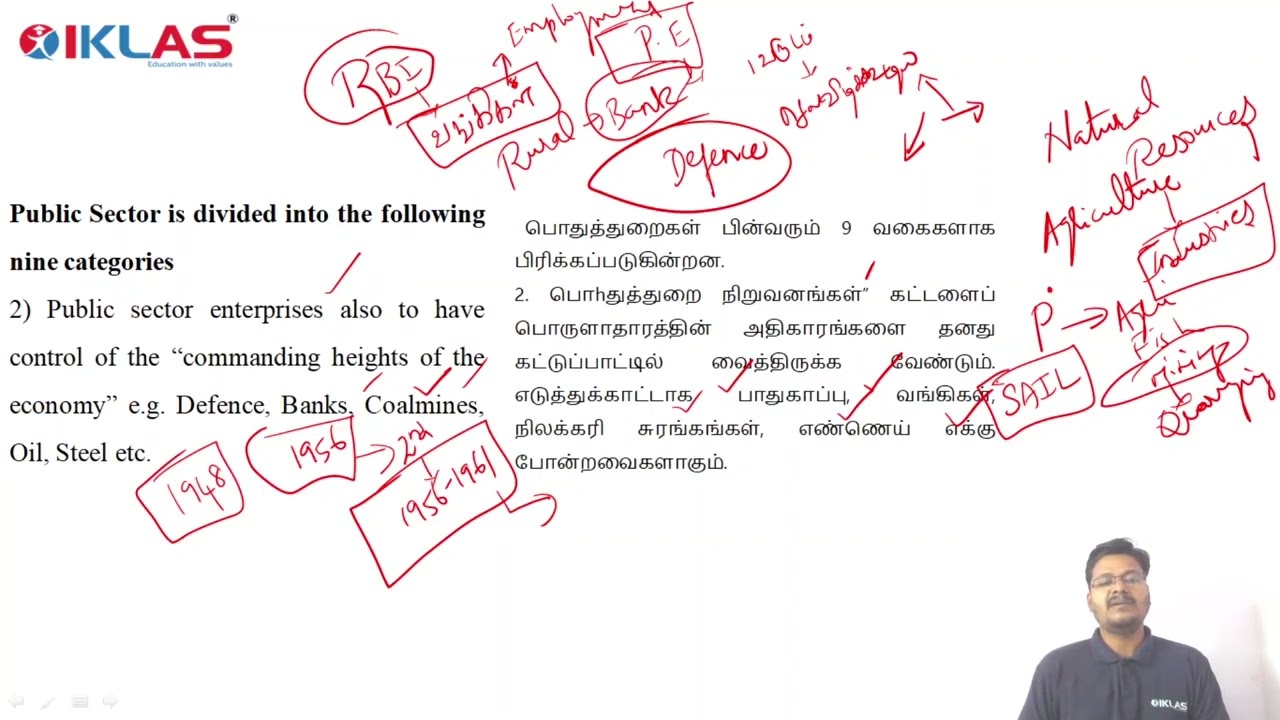 IKLAS®
Education with values
Employment
P.E
RBI
வங்கிகள்
Rural → Bank
Defence
Natural
Resources
Agriculture
Industries
P → Agri
Fish
Mining
Quarrying
SAIL
Public Sector is divided into the following
nine categories
2) Public sector enterprises also to have
control of the “commanding heights of the
economy” e.g. Defence, Banks, Coalmines,
Oil, Steel etc.
1948
1956
2nd
1956-1961
பொதுத்துறைகள் பின்வரும் 9 வகைகளாக
பிரிக்கப்படுகின்றன.
2. பொhதுத்துறை நிறுவனங்கள்” கட்டளைப்
பொருளாதாரத்தின் அதிகாரங்களை தனது
கட்டுப்பாட்டில் வைத்திருக்க வேண்டும்.
எடுத்துக்காட்டாக பாதுகாப்பு, வங்கிகள்,
நிலக்கரி சுரங்கங்கள், எண்ணெய் எக்கு
போன்றவைகளாகும்.
IKLAS